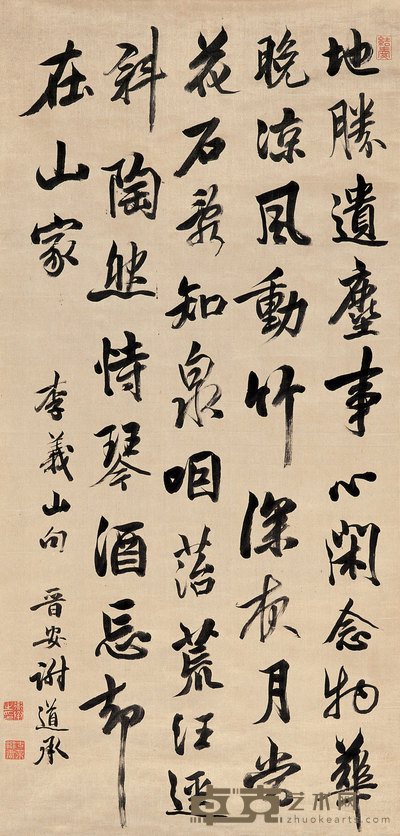 地勝遺塵事心閑念物華
晚涼風動竹深夜月當
花石亂知泉咽苔荒任逕
斜陶然恃琴酒忘却
在山家
李義山句 晉安謝道承
卓克艺术网
zhuokearts.com